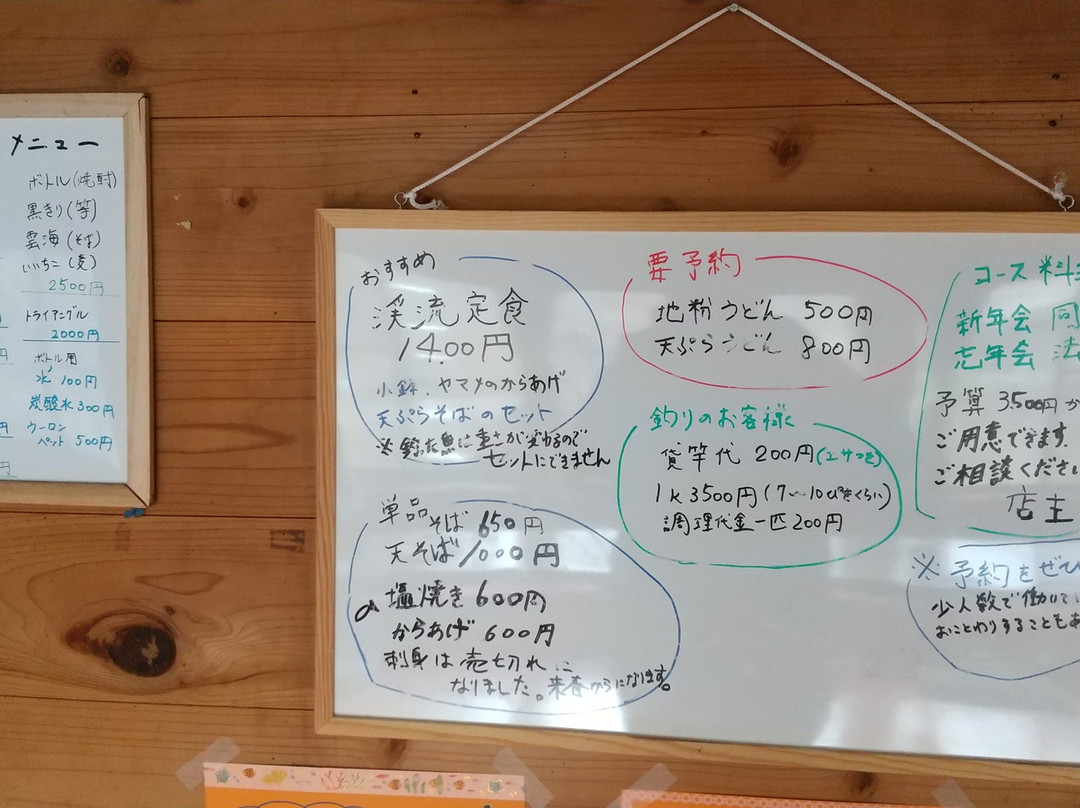 メニュー
ボトル(焼酎)
黒きり(等)
雲海(そば)
いいちこ(麦)
2500円
トライアングル
2000円
ボトル用
水 100円
炭酸水300円
ウーロン
ペット 500円
おすすめ
渓流定食
1400円
小鉢、ヤマメのからあげ
天ぷらそばのセット
※釣った魚に重さが変わるので
セットにできません
単品
そば 650円
天そば1000円
塩焼き600円
からあげ 600円
刺身は売切れに
なりました。来春からになります。
要予約
地粉うどん 500円
天ぷらうどん 800円
釣りのお客様
貸竿代 200円(エサつき)
1k3500円(7〜10ぴきくらい)
調理代金一匹200円
コース料
新年会 同
忘年会 法
予算 3500円か
ご用意できます
ご相談ください
店主
※予約をぜひ
少人数で働いて
おことわりすることもあ